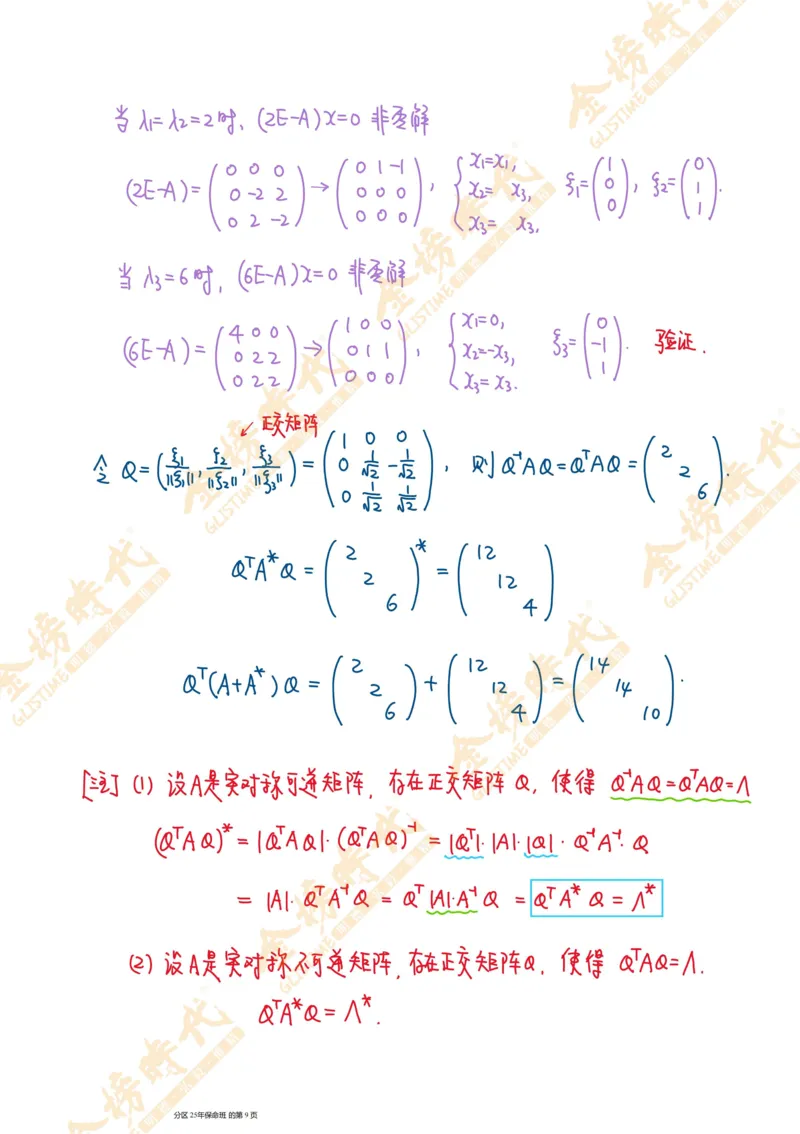 当 λ1=λ2=2时, (2E-A)x=0 非零解
(2E-A)=(0 0 0; 0 -2 2; 0 2 -2)→(0 1 -1; 0 0 0; 0 0 0), {x1=x1, x2= x3, x3= x3, ξ1=(1; 0; 0), ξ2=(0; 1; 1).
当 λ3=6时, (6E-A)x=0 非零解
(6E-A)=(4 0 0; 0 2 2; 0 2 2)→(1 0 0; 0 1 1; 0 0 0), {x1=0, x2=-x3, x3=x3. ξ3=(0; -1; 1). 验证.
↙正交矩阵
令 Q=(ξ1/||ξ1||, ξ2/||ξ2||, ξ3/||ξ3||)=(1 0 0; 0 1/√2 -1/√2; 0 1/√2 1/√2), 则 Q⁻¹AQ=QᵀAQ=(2 2 6).
QᵀA*Q=(2 2 6)*=(12 12 4)
Qᵀ(A+A*)Q=(2 2 6)+(12 12 4)=(14 14 10).
[注] (1) 设A是实对称可逆矩阵, 存在正交矩阵 Q, 使得 Q⁻¹AQ=QᵀAQ=Λ
(QᵀAQ)*=|QᵀAQ|·(QᵀAQ)⁻¹=|Qᵀ|·|A|·|Q|·Q⁻¹A⁻¹·Q
=|A|·QᵀA⁻¹Q=Qᵀ|A|·A⁻¹Q=QᵀA*Q=Λ*
(2) 设A是实对称不可逆矩阵, 存在正交矩阵Q, 使得 QᵀAQ=Λ.
QᵀA*Q=Λ*.
金榜時代
GLISTIME
分区 25年保命班 的第 9 页